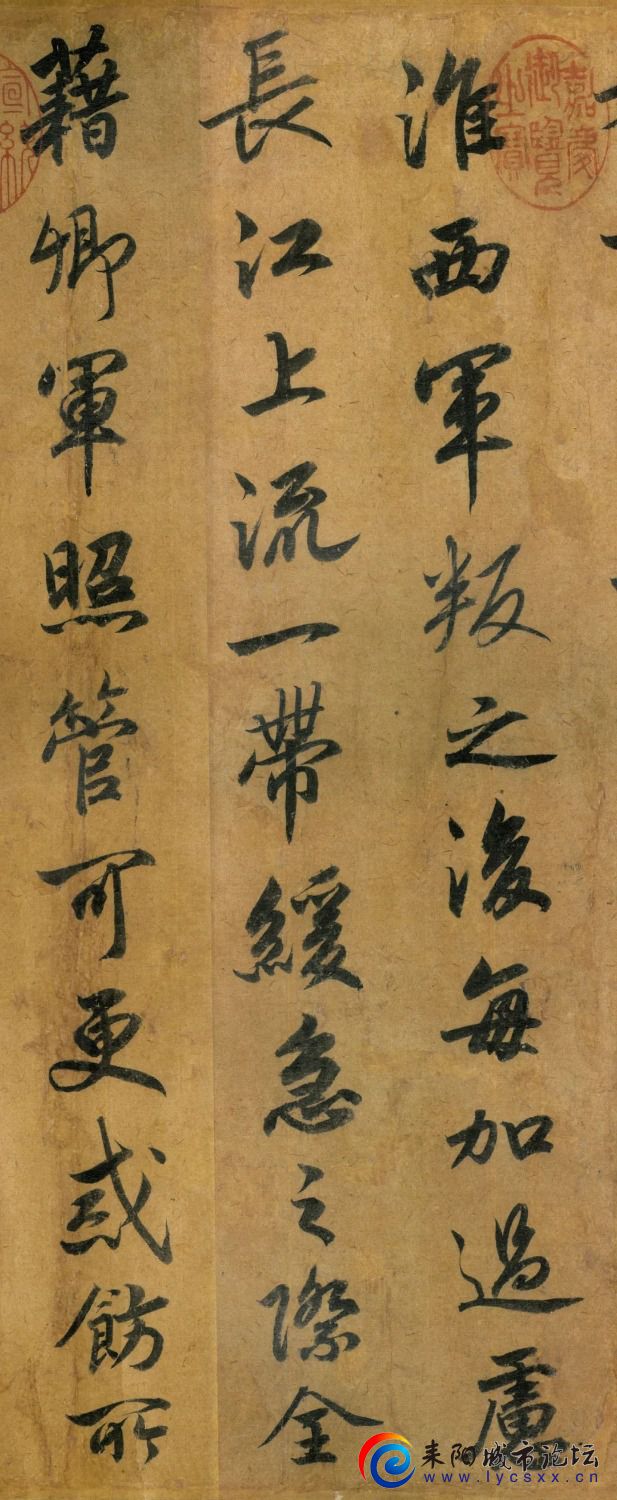 淮西軍叛之後每加過慮
長江上流一帶緩急之際全
藉卿軍照管可更戒飭所
嘉慶御覽之寶
宣統
耒阳城市论坛
www.lycsxx.cn